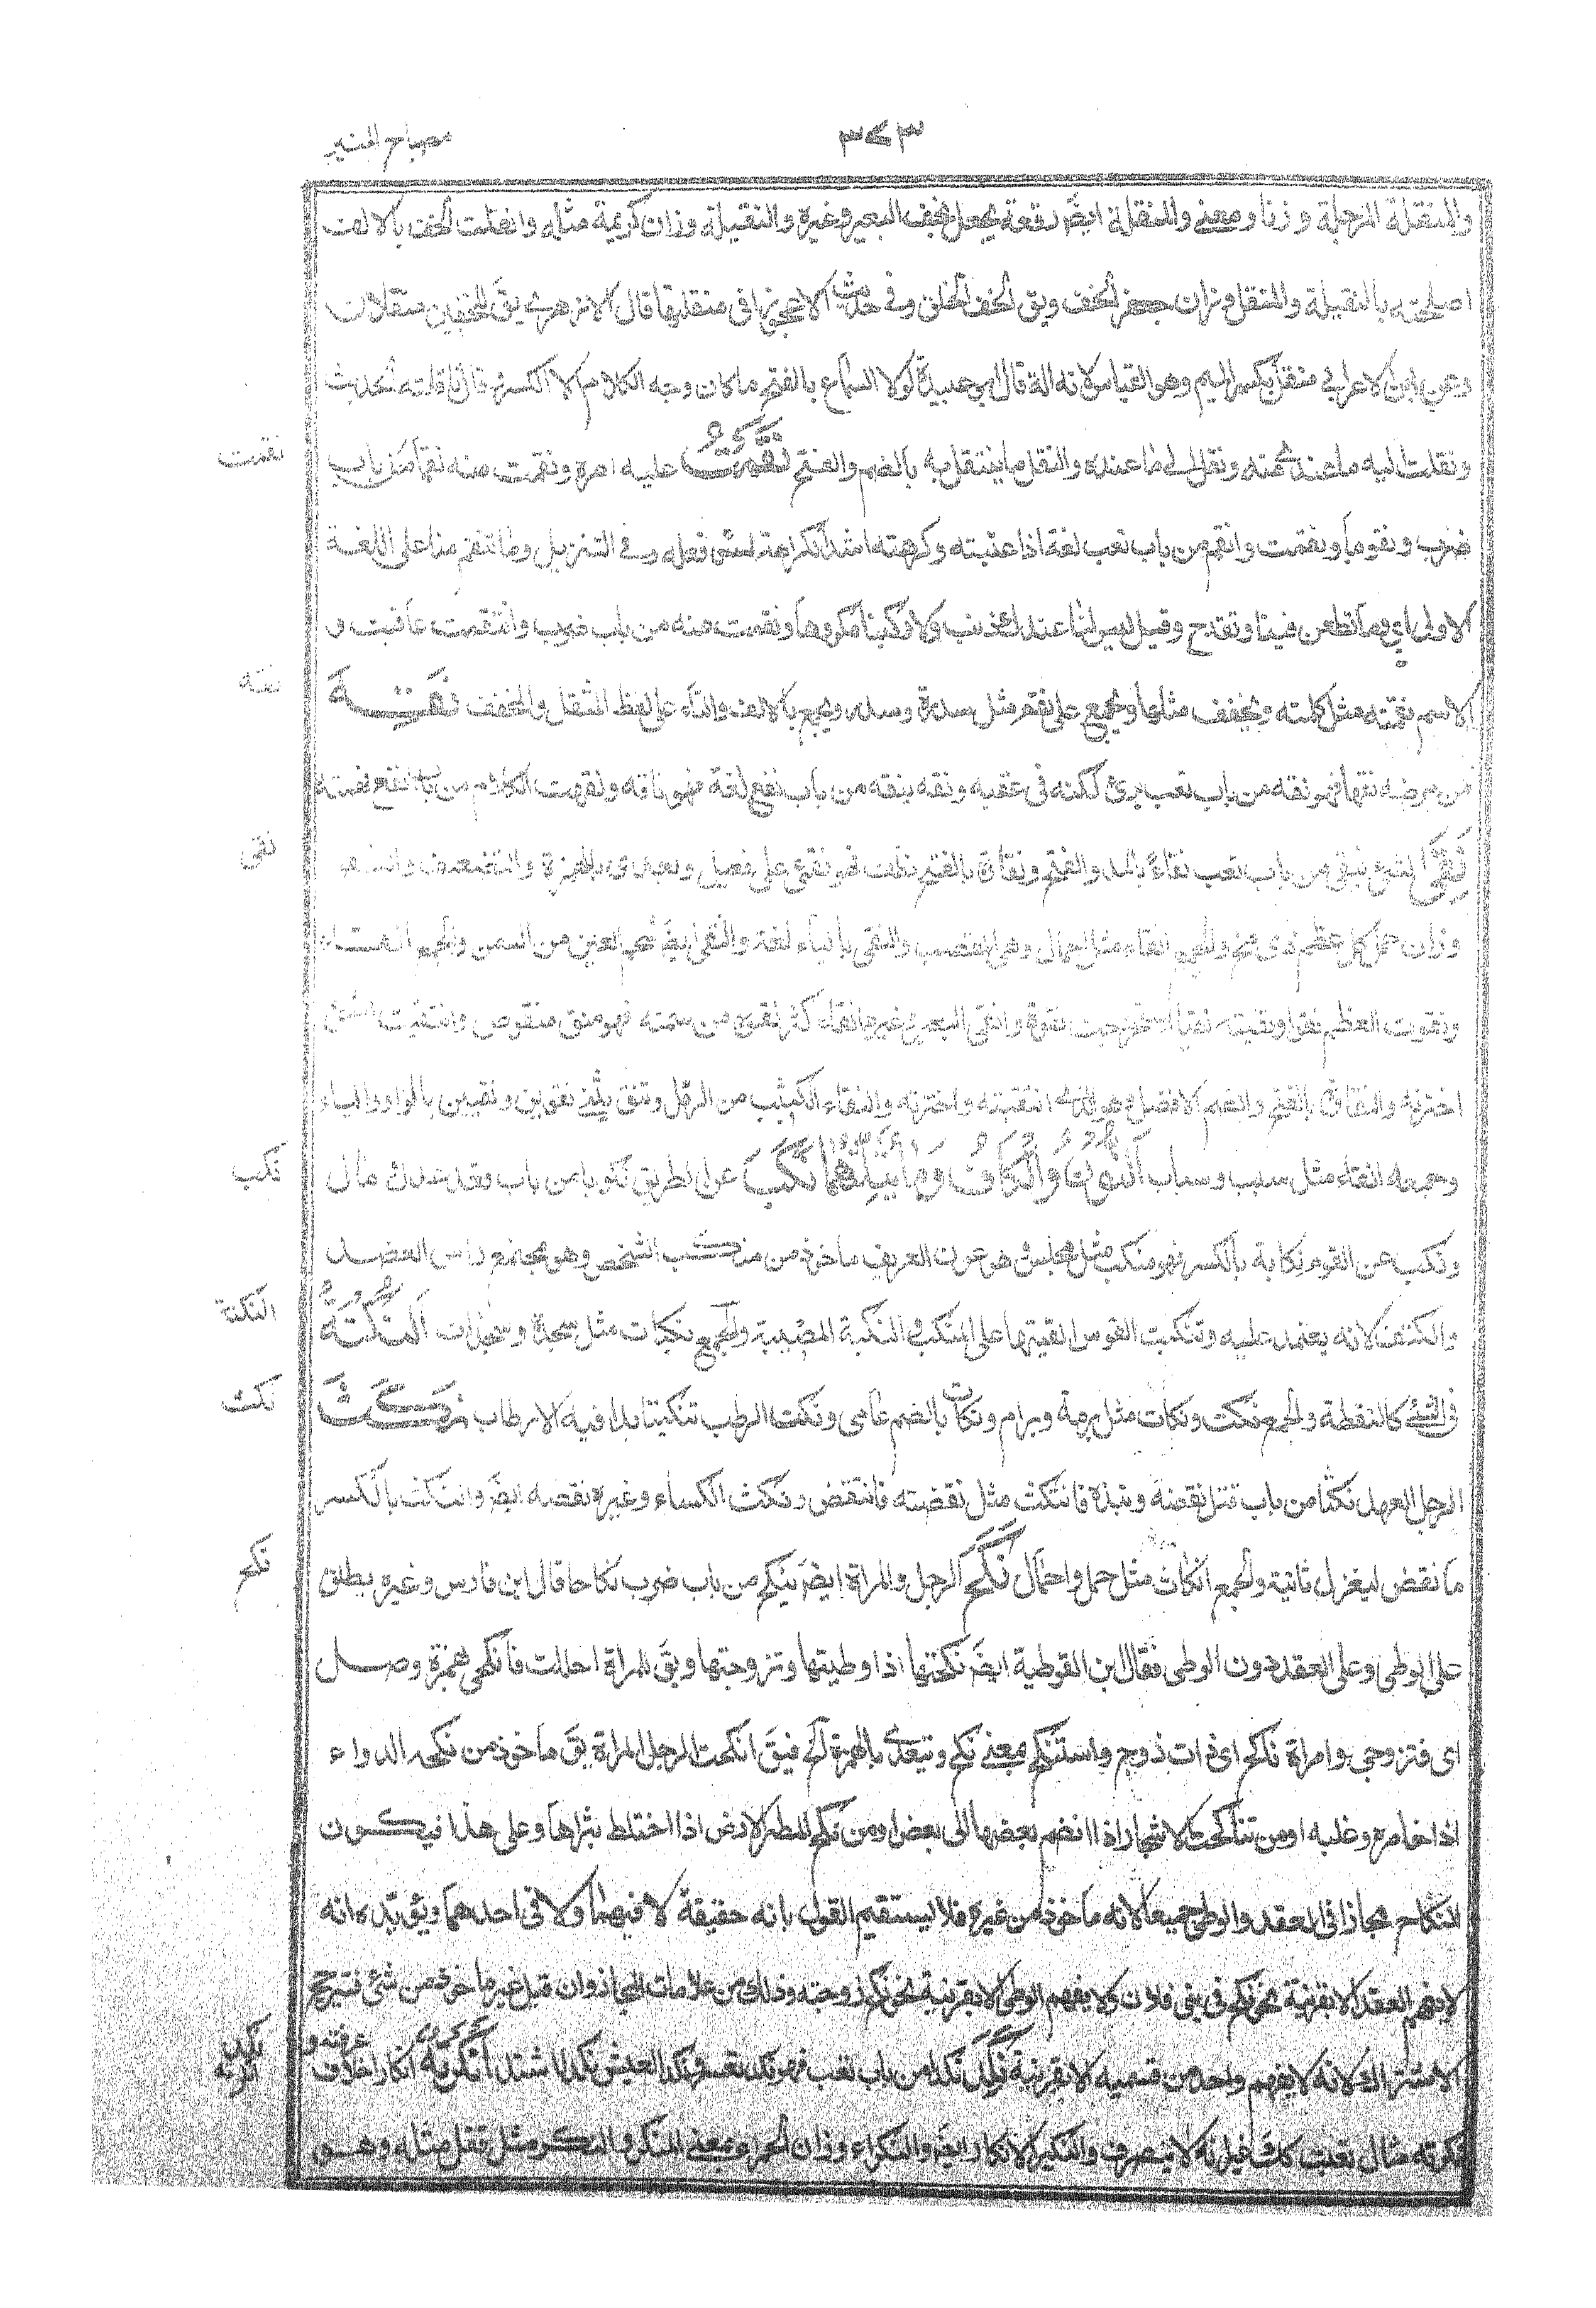 مصباح المنير
٣٧٣
والمنقلة المرحلة وزنا ومعنى والمنقلة ايضً رقعة يجعل بخف البعير وغيره والنقيلة وزان كريمة مثله وانقلت الخف بالالف
اصلحته بالنقيلة والمنقل وزان جعفر الخف ويق الخف الخلق وفى حديث الاعجزا فى منقليها قال الازهرى يق للخفين منقلان
وعن ابن الاعرابى منقل بكسر الميم وهو القياس لانه الة قال ابو عبيدة لولا السماع بالفتح ما كان وجه الكلام الا الكسر قال ناقلته الحديث
ونقلت اليه ما عندى منه ونقل الى ما عنده والنقل ما ينتقل به بالضم والفتح نَقَمْتُ عليه امره ونقمت منه نقما من باب
نقمت
ضرب ونقوما ونقمت وانقم من باب تعب لغة اذا عتبته وكرهته اشد الكراهة لسوء فعله وفى التنزيل وما تنقم منا على اللغة
الاولى اى وما تطعن فينا وتقدح وقيل ليس لنا عندك ذنب ولا ركبنا مكروها ونقمت منه من باب ضرب وانتقمت عاقبت و
الاسم نقمته مثل كلمته ويخفف مثلها ويجمع على نقم مثل سدرة وسدر ويجمع بالالف والتاء على لفظ المثقل والمخفف نَقِـــهَ
نقه
من مرضه نقها فهو نقه من باب تعب برئ لكنه فى عقبه ونقه ينقه من باب نفع لغة فهو ناقه ونقهت الكلام من باب نفع فهمته
نَقِىَ الشئ ينقى من باب تعب نقاء بالمد والفتح ونقاوة بالفتح نظف فهو نقى على فعيل ويعدى بالهمزة والتضعيف
نقى
وزان حمل كل عظم ذى مخ والجمع انقاء مثل احمال وهى القصب والنقى بالياء لغة والنقى ايضً شحم العين من السمن والجمع انقـــاء
ونقوت العظم نقوا ونقيته نقيا استخرجت نقوه وانقى البعير وغيره انقاء كثر نقوه من سمنه فهو منق منقوص وانتقيت الشئ
اخترته والنقاوة بالفتح والضم الافضل وهو الذى انتقيته واخترته والنقاء الكثيب من الرمل وتنق يثنى نقوين ونقيين بالواو والياء
وجمعه انقاء مثل سبب وسباب اَلنُّوْنُ وَالْكَافُ وَمَا يَثْلِثُهُمَا نَكَبَ عن الطريق نكوبا من باب وقعد عدل ومال
نكب
ونكب عن القوم نكابة بالكسر فهو منكب مثل مجلس هو عون العريف ماخوذ من منكـــب الشخص وهو مجتمع راس العضـــد
والكتف لانه يعتمد عليه وتنكبت القوس القيتها على المنكب والنكبة المصيبة والجمع نكبات مثل سجدة وسجدات اَلنُّكْتَةُ
النكتة
فى الشئ كالنقطة والجمع نكت ونكات مثل برمة وبرام ونكات بالضم عامى ونكت الرطب تنكيتا بدا فيه الارطاب نَكَـــثَ
نكث
الرجل العهد نكثا من باب قتل نقضه ونبذه فانتكث مثل نقضته فانتقض ونكث الكساء وغيره نقضه ايضً والنكث بالكسر
ما نقض ليغزل ثانية والجمع انكاث مثل حمل واحمال نَكَحَ الرجل والمراة ايضً ينكح من باب ضرب نكاحا قال ابن فارس وغيره يطلق
نكح
على الوطى وعلى العقد دون الوطى فقال ابن القوطية ايضً نكحتها اذا وطيتها وتزوجتها ويق للمراة احللت فانكحى بهمزة وصـــل
اى فتزوجى وامراة ناكح اى ذات زوج واستنكح بمعنى نكح ويتعدى بالهمزة الخ فيق انكحت الرجل المراة يق ماخوذ من نكحه الدواء
اذا خامره وغلبه او من تناكحت الاشجار اذا انضم بعضها الى بعض او من نكح المطر الارض اذا اختلط بثراها وعلى هذا فيكـــون
النكاح مجازا فى العقد والوطى جميعا لانه ماخوذ من غيره فلا يستقيم القول بانه حقيقة لا فيهما ولا فى احدهما ويؤيده انه
لا يفهم العقد الا بقرينة نحو نكح فى بنى فلان ولا يفهم الوطى الا بقرينة نحو نكح زوجته وذلك من علامات المجاز وان قيل غير ماخوذ من شئ فيترجح
الاشتراك لانه لا يفهم واحد من قسميه الا بقرينة نَكِدَ نكدا من باب تعب فهو نكد تعسر ونكد العيش نكدا اشتد اَنْكَرْتُهُ انكارا خلاف عرفته و
نكد
انكرته
نكرته مثال تعبت كذلك غير انه لا يتصرف والنكير الانكار ايضً والنكراء وزان الحمراء بمعنى المنكر والنكـــر مثل قفل مثله وهـــو